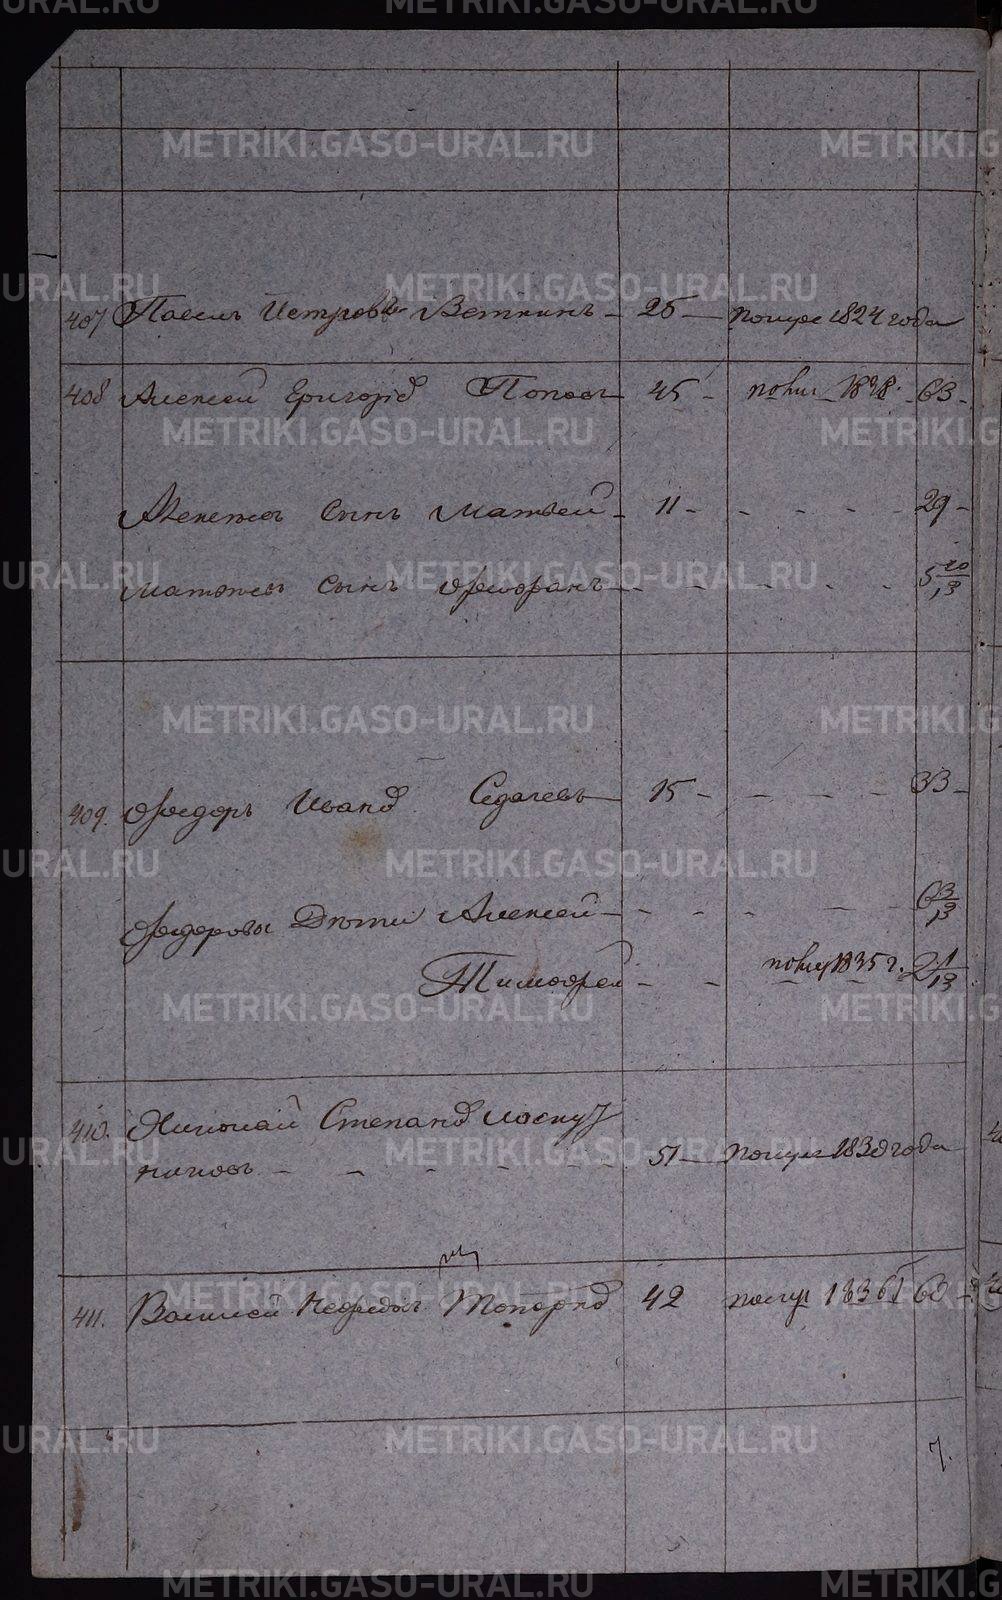 407 Павелъ Петровъ Веткинъ - 26 - помре 1824 года
408 Алексей Григорьев Поповъ 45 - 1838. 63 -
Алексея сынъ Матвей - 11 - - - - - 29 -
Матвея сынъ Феофанъ - - - - - - 5 10/13
409. Федоръ Иванов Седачевъ 15 - - - - - 33 -
Федоровы Дети Алексей - - - - - -
Тимофей - - 1835 г. 2 1/13
410. Николай Степанов
- - - - - - 51 - 1830 года
411. Василей Нефедов Топорков 42 1836 г 60 -
7.
METRIKI.GASO-URAL.RU